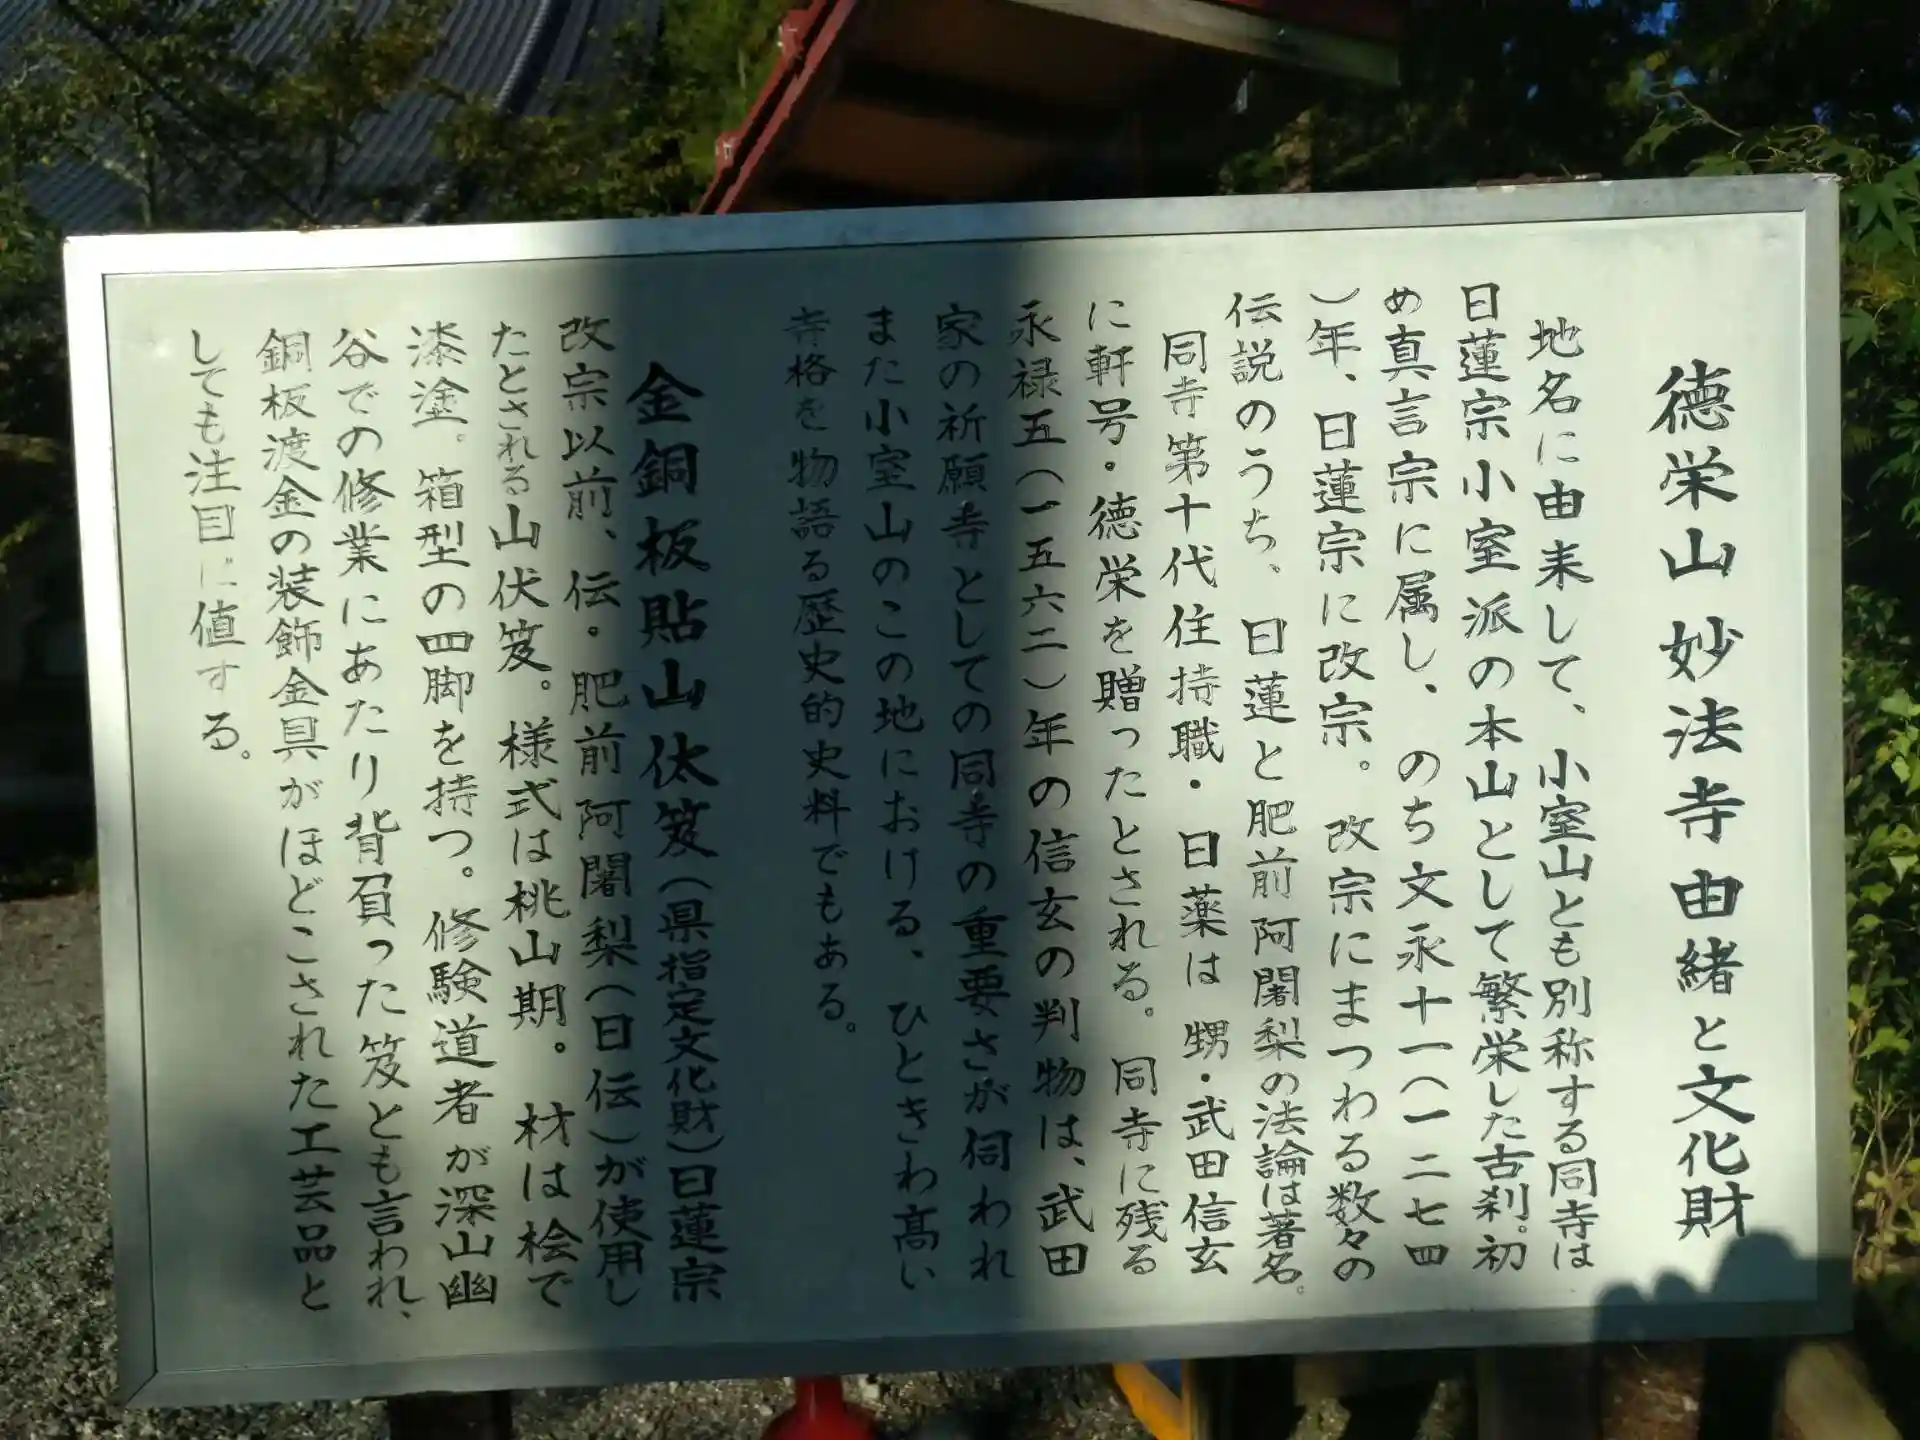 徳栄山妙法寺由緒と文化財
地名に由来して、小室山とも別称する同寺は
日蓮宗小室派の本山として繁栄した古刹。初
め真言宗に属し、のち文永十一(一二七四
)年、日蓮宗に改宗。改宗にまつわる数々の
伝説のうち、日蓮と肥前阿闍梨の法論は著名。
同寺第十代住持職・日薬は甥・武田信玄
に軒号・徳栄を贈ったとされる。同寺に残る
永禄五(一五六二)年の信玄の判物は、武田
家の祈願寺としての同寺の重要さが伺われ
また小室山のこの地における、ひときわ高い
寺格を物語る歴史的史料でもある。
金銅板貼山伏笈(県指定文化財)日蓮宗
改宗以前、伝・肥前阿闍梨(日伝)が使用し
たとされる山伏笈。様式は桃山期。材は桧で
漆塗。箱型の四脚を持つ。修験道者が深山幽
谷での修業にあたり背負った笈とも言われ、
銅板渡金の装飾金具がほどこされた工芸品と
しても注目に値する。